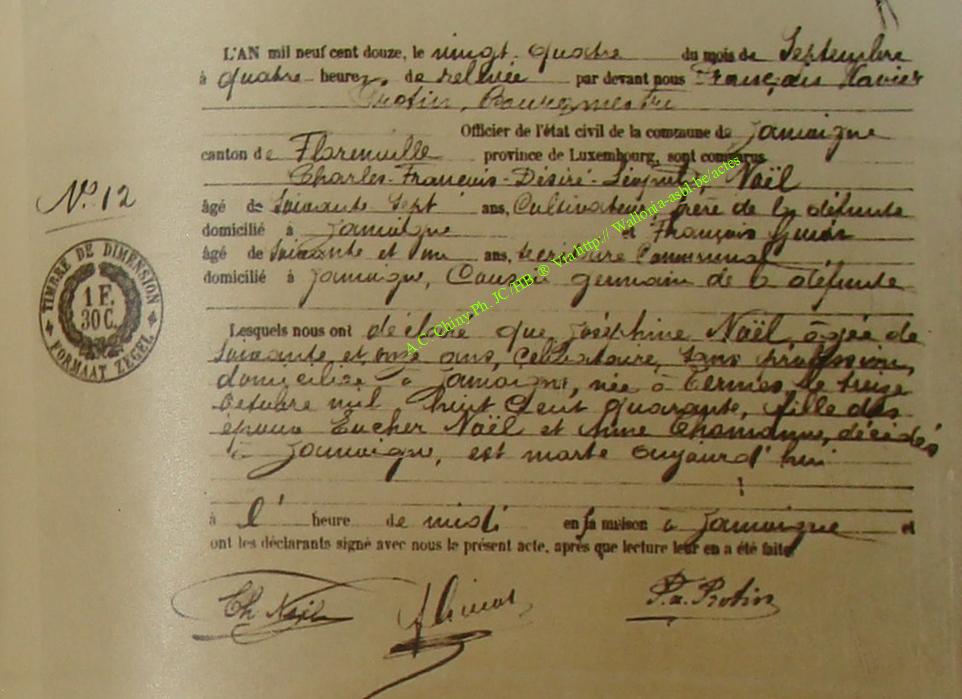 L'AN mil neuf cent douze, le vingt quatre du mois de Septembre
à quatre heures de relevée par devant nous François Xavier
Protin, Bourgmestre
Officier de l'état civil de la commune de Jamoigne
canton de Florenville province de Luxembourg, sont comparus
Charles-François-Désiré-Léopold Noël
N° 12
âgé de Soixante sept ans, Cultivateur, frère de la défunte
domicilié à Jamoigne et François
âgé de Soixante et un ans, secrétaire Communal
domicilié à Jamoigne, Cousin germain de la défunte
TIMBRE DE DIMENSION
1 F.
30 C.
FORMAAT ZEGEL
Lesquels nous ont déclaré que Joséphine Noël, âgée de
soixante et onze ans, Célibataire, sans profession,
domiciliée à Jamoigne, née à Termes, le treize
Octobre mil huit Cent quarante, fille des
époux Eucher Noël et Anne décédés
à Jamoigne, est morte aujourd'hui
à l' heure de midi en sa maison à Jamoigne et
ont les déclarants signé avec nous le présent acte, après que lecture leur en a été faite.
Ch. Noël
F. X. Protin
A.C-Chiny Ph. JC /HB ® Via http:// Wallonia-asbl-be/actes